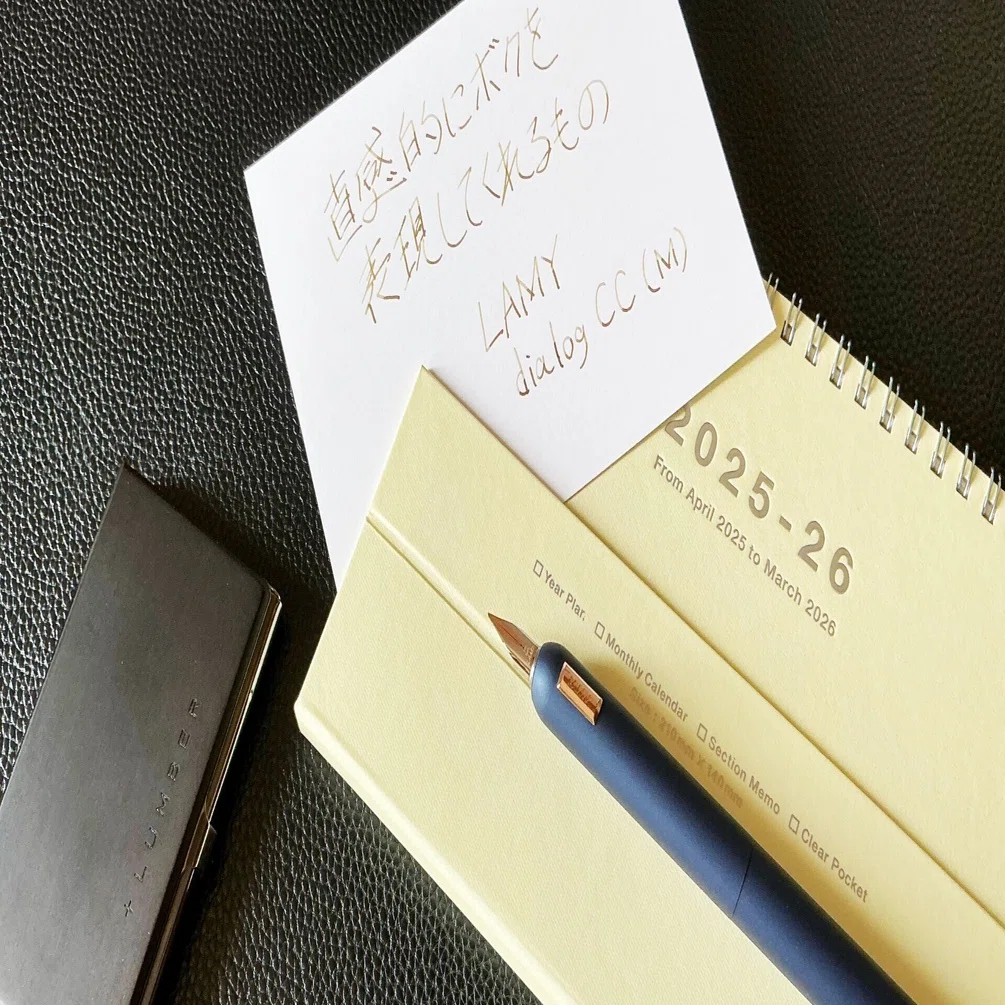 直感的にボクを
表現してくれるもの
LAMY
dialog CC (M)
2025-26
From April 2025 to March 2026
□ Year Plan. □ Monthly Calendar □ Section Memo □ Clear Pocket
Size : 210mm X 140mm
+LUMBER